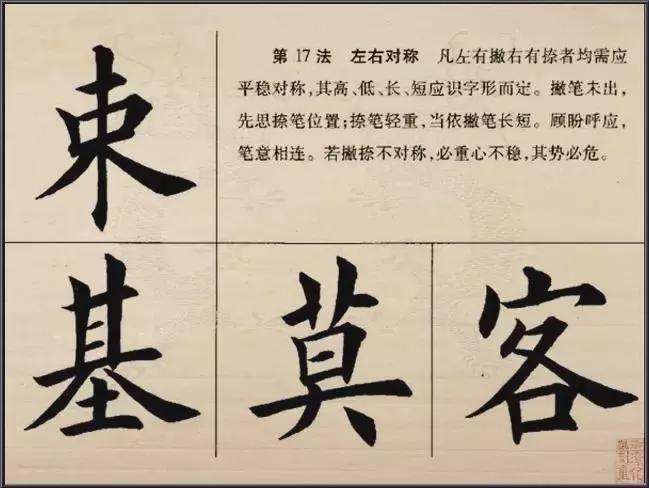 束
第17法 左右对称 凡左有撇右有捺者均需应
平稳对称,其高、低、长、短应识字形而定。撇笔未出,
先思捺笔位置;捺笔轻重,当依撇笔长短。顾盼呼应,
笔意相连。若撇捺不对称,必重心不稳,其势必危。
基 莫 客